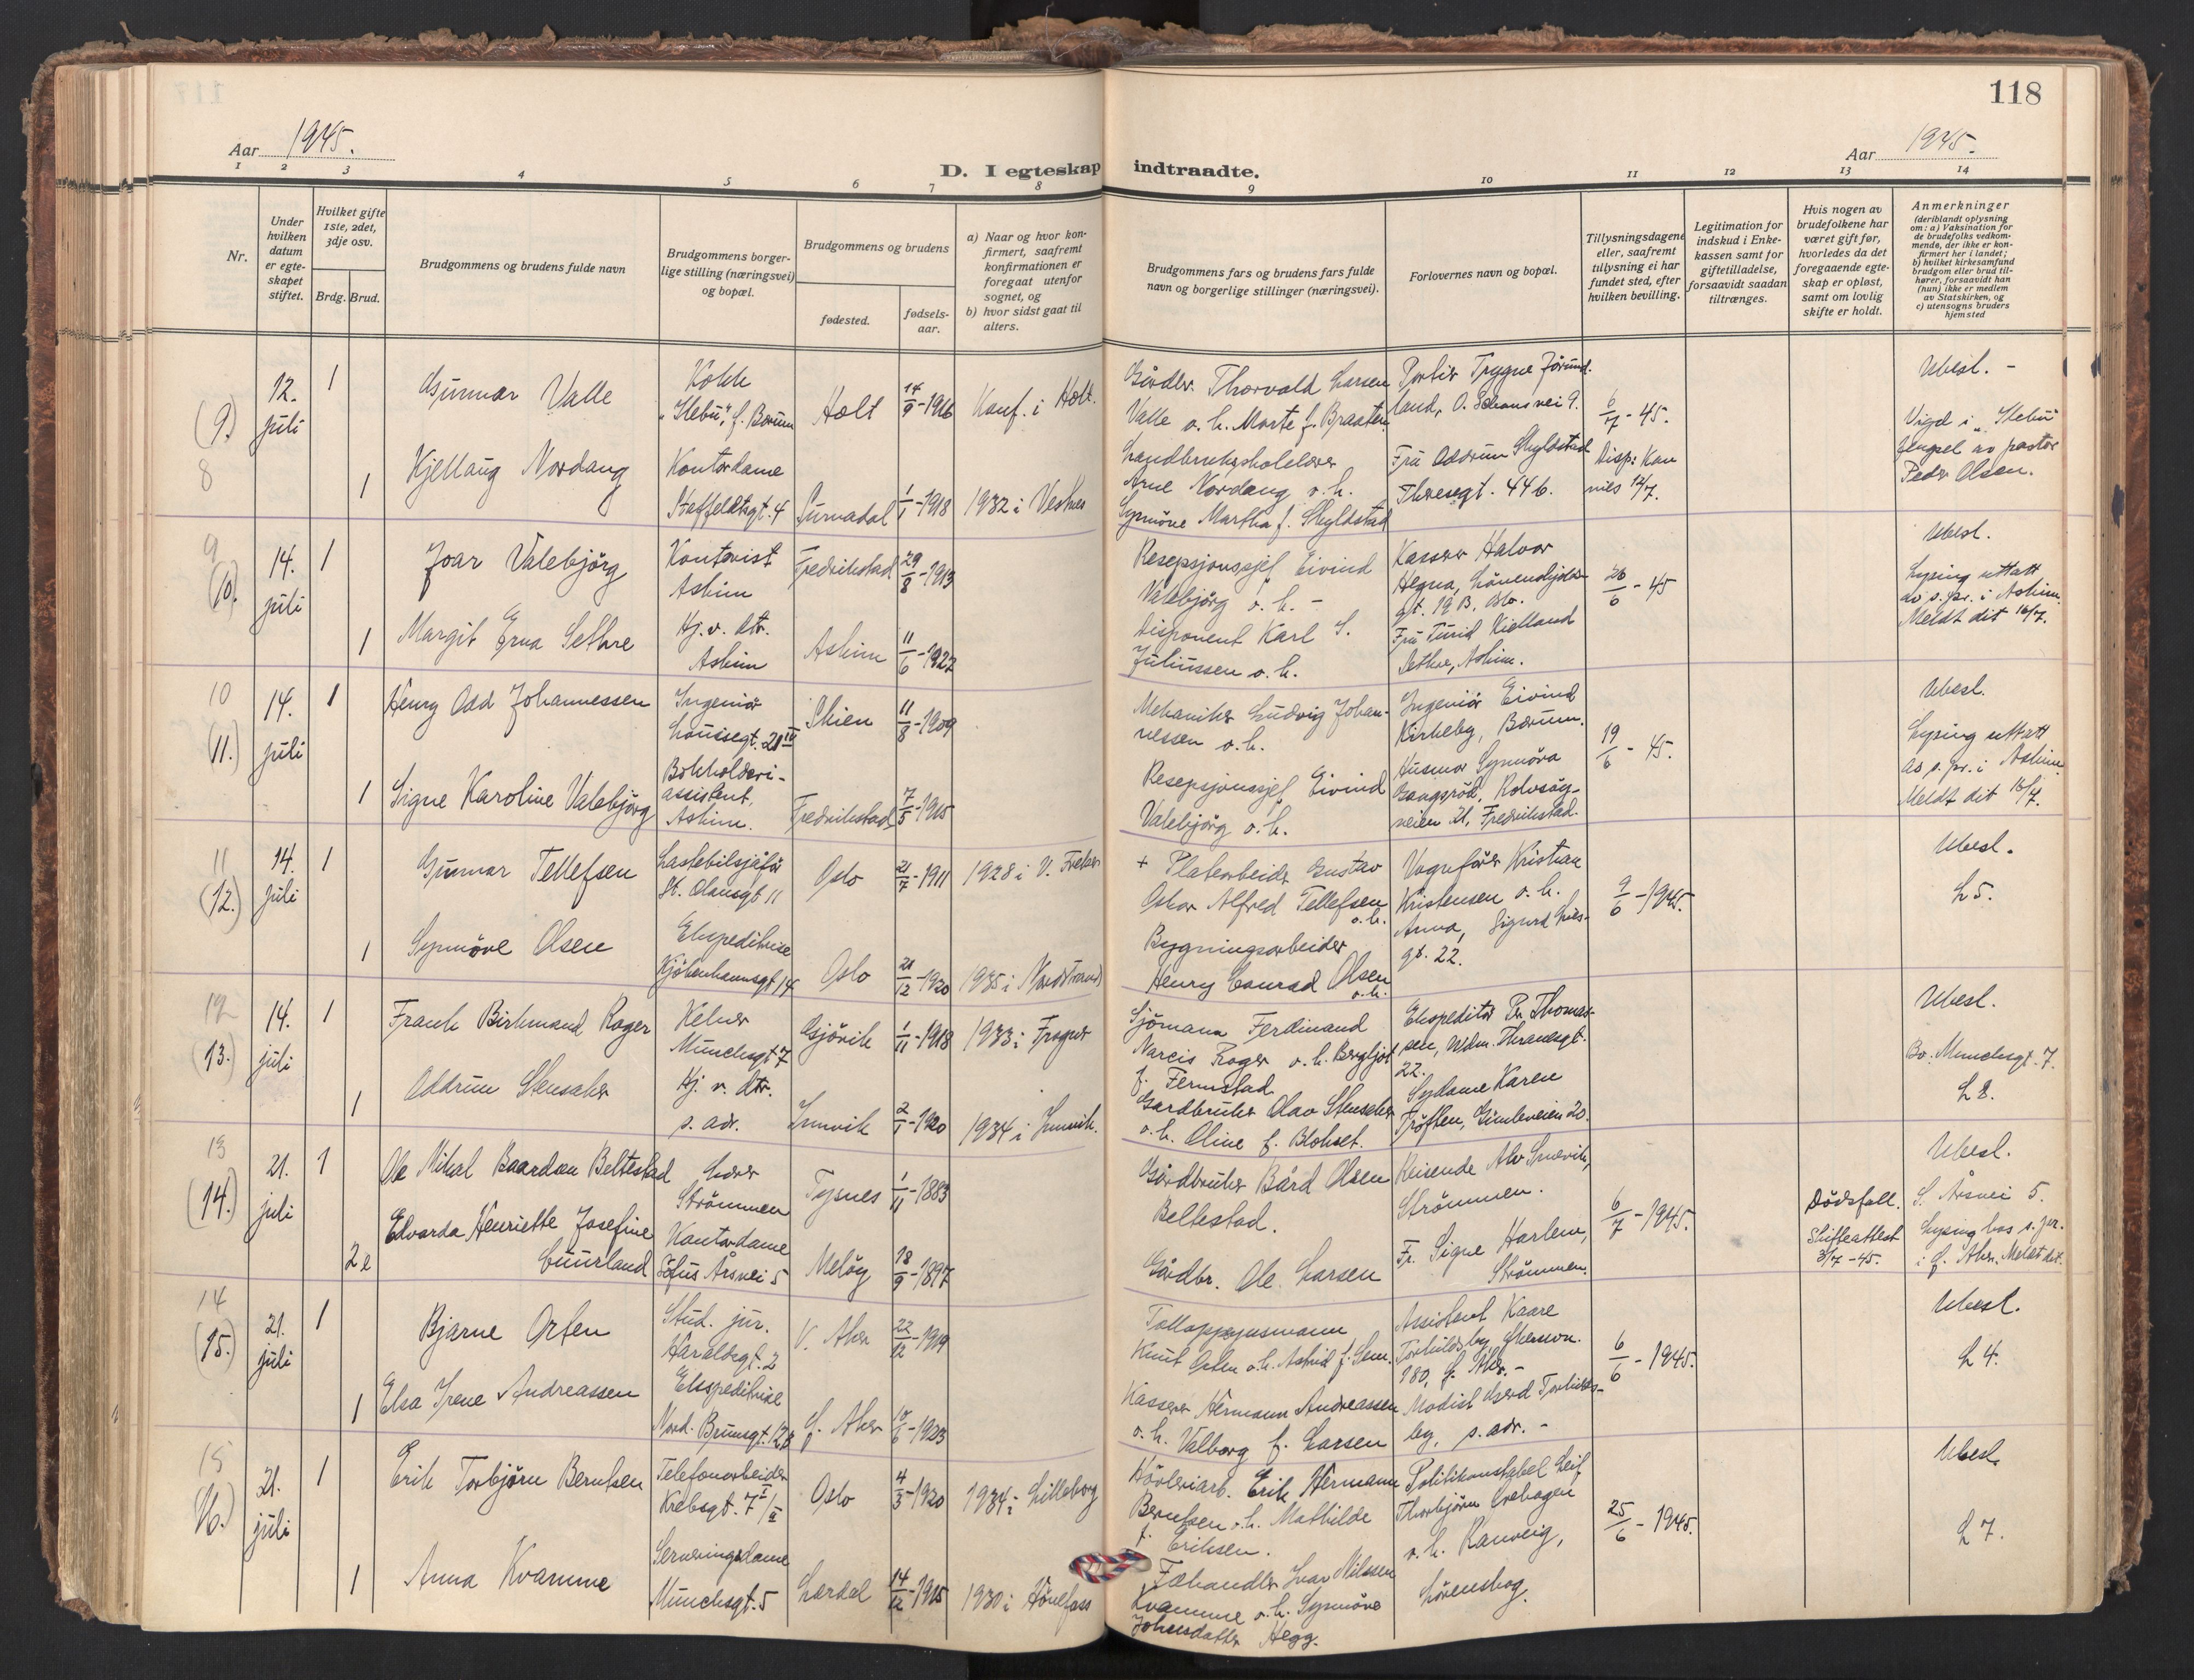 118
Aar 1945.
Aar 1945.
D. I egteskap indtraadte.
1 2 3 4 5 6 7 8 9 10 11 12 13 14
Nr.
Under hvilken datum er egteskapet stiftet.
Hvilket gifte 1ste, 2det, 3dje osv.
Brdg. Brud.
Brudgommens og brudens fulde navn
Brudgommens borgerlige stilling (næringsvei) og bopæl.
Brudgommens og brudens
fødested.
fødselsaar.
a) Naar og hvor konfirmert, saafremt konfirmationen er foregaat utenfor sognet, og
b) hvor sidst gaat til alters.
Brudgommens fars og brudens fars fulde navn og borgerlige stillinger (næringsvei).
Forlovernes navn og bopæl.
Tillysningsdagene eller, saafremt tillysning ei har fundet sted, efter hvilken bevilling.
Legitimation for indskud i Enkekassen samt for giftetilladelse, forsaavidt saadan tiltrænges.
Hvis nogen av brudefolkene har været gift før, hvorledes da det foregaaende egteskap er opløst, samt om lovlig skifte er holdt.
Anmerkninger
(deriblandt oplysning om: a) Vaksination for de brudefolks vedkommende, der ikke er konfirmert her i landet;
b) hvilket kirkesamfund brudgom eller brud tilhører, forsaavidt han (hun) ikke er medlem av Statskirken, og
c) utensogns bruders hjemsted
(9.) 8
12. juli
1
Gunnar Valle
Kokk
"Ilebu", f. Bærum
Holt
14/9-1916
Konf. i Holt.
Gårdbr. Thorvald Larsen
Valle o. h. Marte f. Braaten.
Portier Trygve Jörundland, O. Schous vei 9.
6/7-45.
Disp: Kan nies 12/7.
Ubesl. -
Vigd i "Ilebu"
fengsel av pastor
Peder Olsen.
1
Kjellaug Nordang
Kontordame
Staffeldtsgt. 4
Surnadal
1/1-1918
1932 i Vestnes
Landbruksskolelærer
Arne Nordang o. h.
Synnöve Martha f. Skyldstad
Fru Oddrun Skyldstad
Theresegt. 44 b.
9 (10.)
14. juli
1
Joar Valebjörg
Kontorist
Askim
Fredrikstad
29/8-1913
Resepsjonssjef Eivind
Valebjörg o. h. -
Kasserer Halvor
Hegna, Lövenskjolds-
gt. 19 B. Oslo.
26/6-45
Ubesl.
Lysing uttatt
av s.pr. i Askim.
Meldt dit 16/7.
1
Margit Erna Sethre
Hj. v. dtr.
Askim
Askim
11/6-1922
Disponent Karl S.
Juliussen o. h.
Fru Turid Kielland
Sethre, Askim.
10 (11.)
14. juli
1
Henry Odd Johannessen
Ingeniör
Louisesgt. 21 IV
Skien
11/8-1909
Mekaniker Ludvig Johannessen o. h.
Ingeniör Eivind
Kirkeby, Bærum.
19/6-45.
Ubesl.
Lysing uttatt
av s.pr. i Askim.
Meldt dit 16/7.
1
Signe Karoline Valebjörg
Bokholderi-
assistent,
Askim.
Fredrikstad
7/5-1915
Resepsjonssjef Eivind
Valebjörg o. h.
Husmor Synnöva
Gangsröd, Rolvsöy-
veien 21, Fredrikstad.
11 (12.)
14. juli
1
Gunnar Tellefsen
Lastebilsjåför
St. Olavsgt 11
Oslo
21/7-1911
1928 i V. Frikir
+ Platearbeider Gustav
Oskar Alfred Tellefsen
o. h.
Vognförer Kristian
Kristensen o. h.
Anna,
gt. 22.
9/6-1945.
Ubesl.
L 5.
1
Synnöve Olsen
Ekspeditrise
Kjöbenhavnsgt 14
Oslo
21/12-1920
1935 i Nordstrand
Bygningsarbeider
Henry Conrad Olsen
o. h.
12 (13.)
14. juli
1
Frank Birkmand Roger
Kelner
Munchsgt 7
Gjövik
1/11-1918
1933 i Frogner
Sjömann Ferdinand
Narcis Roger o. h. Bergljot
f. Fermstad
Ekspeditör Pr. Thomassen, Wdm. Thranesgt.
22.
Ubesl.
Bo. Munchsgt. 7.
L 8.
1
Oddrun Stensaker
Hj. v. dtr.
s. adr.
Innvik
2/1-1920
1934 i Innvik.
Gardbruker Olav Stensaker
o. h. Oline f. Blokset.
Sydame Karen
Tröften, Gimleveien 20.
13 (14.)
21. juli
1
Ole Mikal Baardsen Beltestad
Lærer
Strömmen
Tysnes
1/11-1883
Gårdbruker Bård Olsen
Beltestad.
Reisende Alv Snevik,
Strömmen.
6/7-1945.
Dödsfall.
Skifteattest
3/7-45.
Ubesl.
S. Årsvei 5.
Lysing hos s. pr.
i Ö. Aker. Meldt dit.
2
Edvarda Henriette Josefine
Guurland
Kontordame
Sofus Årsvei 5
Melöy
18/9-1897
Gårdbr. Ole Larsen
Fr. Signe Harlem,
Strömmen.
14 (15.)
21. juli
1
Bjarne Orten
Stud. jur.
Haraldsgt. 2
V. Aker
22/12-1919
Tolloppsynsmann
Knut Orten o. h. Astrid f. Sem.
Assistent Kaare
Torkildsby,
180, Ö. Aker. -
6/6-1945.
Ubesl.
L 4.
1
Elsa Irene Andreassen
Ekspeditrise
Nord. Brunsgt. 12 B
Ö. Aker
10/6-1923
Kasserer Hermann Andreassen
o. h. Valborg f. Larsen
Modist Gerd Torkildsby, s. adr. -
15 (16.)
21. juli
1
Erik Torbjörn Berntsen
Telefonarbeider
Krebsgt. 7 I/II
Oslo
4/3-1920
1934 i Lilleborg
Hövleriarb. Erik Hermann
Berntsen o. h. Mathilde
f. Eriksen.
Politikonstabel Leif
Thorbjörn
o. h. Ranveig,
Lörenskog.
25/6-1945.
Ubesl.
L 7.
1
Anna Kvamme
Serveringsdame
Munchsgt. 5
Lærdal
14/12-1915
1930 i Hönefoss
Fehandler Ivar Nilssen
Kvamme o. h. Synnöve
Johnsdatter Hegg.